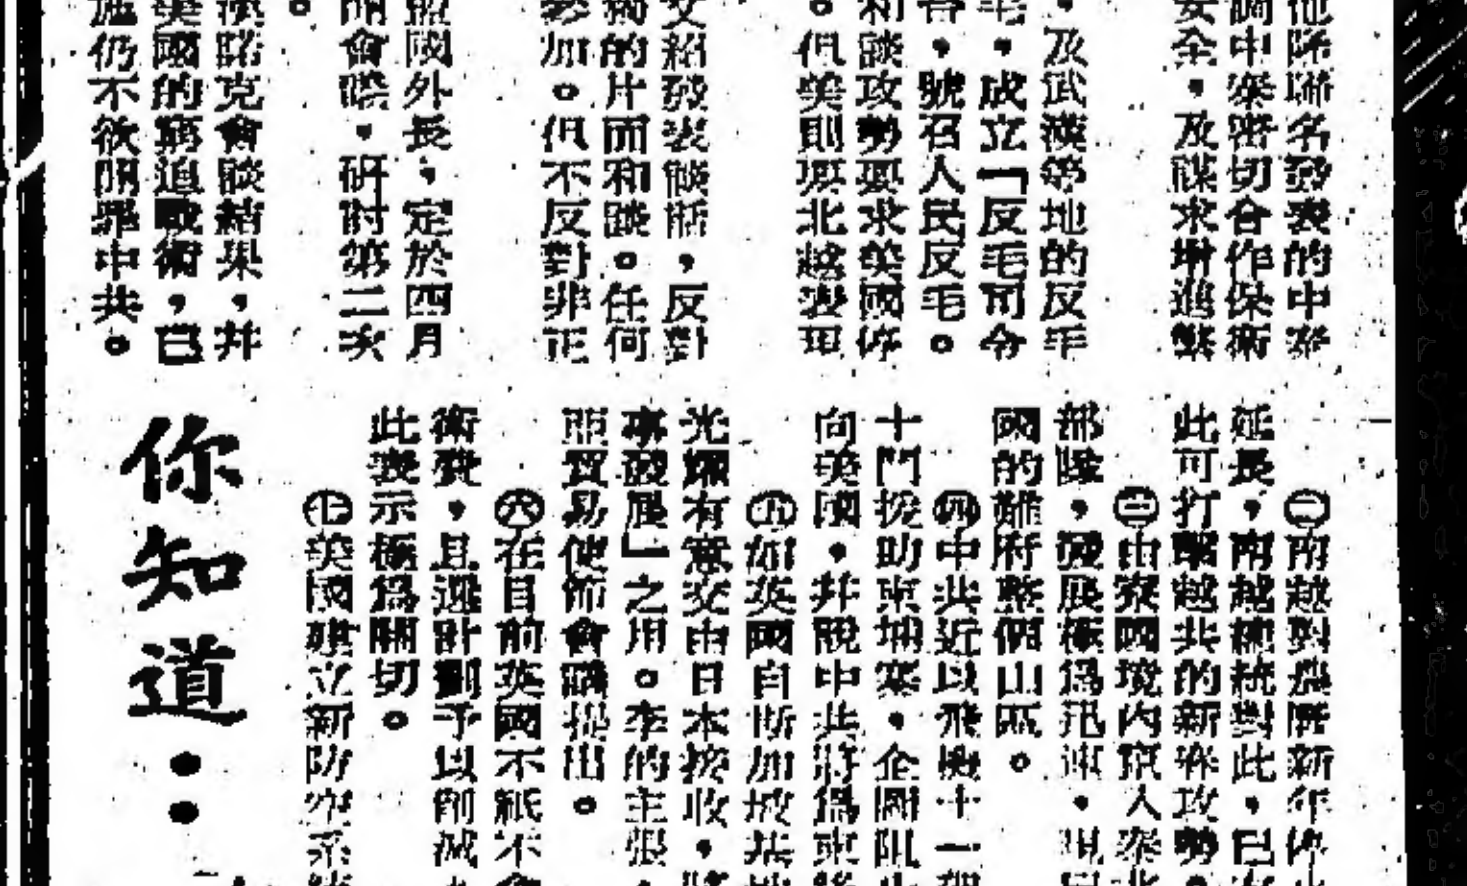 他除聯名發表的中泰
調中泰密切合作保衛
安全，及謀求增進繫
，及武漢等地的反毛
毛，成立「反毛司令
召，號召人民反毛。
和談攻勢要求美國停
。但美則要北越表现
文紹發表談話，反對
獨的片面和談。任何
參加。但不反對非正
盟國外長，定於四月
開會議，研討第二次
。
漢諾克會談結果，并
美國的窮追戰術，已
施仍不欲開罪中共。
㊁南越對農曆新年停火
延長，南越總統對此，已
此可打擊越共的新春攻勢。
㊂由寮國境內竄入泰北
部隊，發展極爲迅速，現
國的難府整個山區。
㊃中共近以飛機十一架
十門援助柬埔寨，企圖阻
向美國，并說中共將爲柬
㊄如英國自斯加坡基地
光耀有意交由日本接收，
事發展」之用。李的主張，
亞貿易使節會議提出。
㊅在目前英國不祇不會
衛費，且還計劃予以削減，
此表示極爲關切。
㊆美國建立新防空系統
你知道··